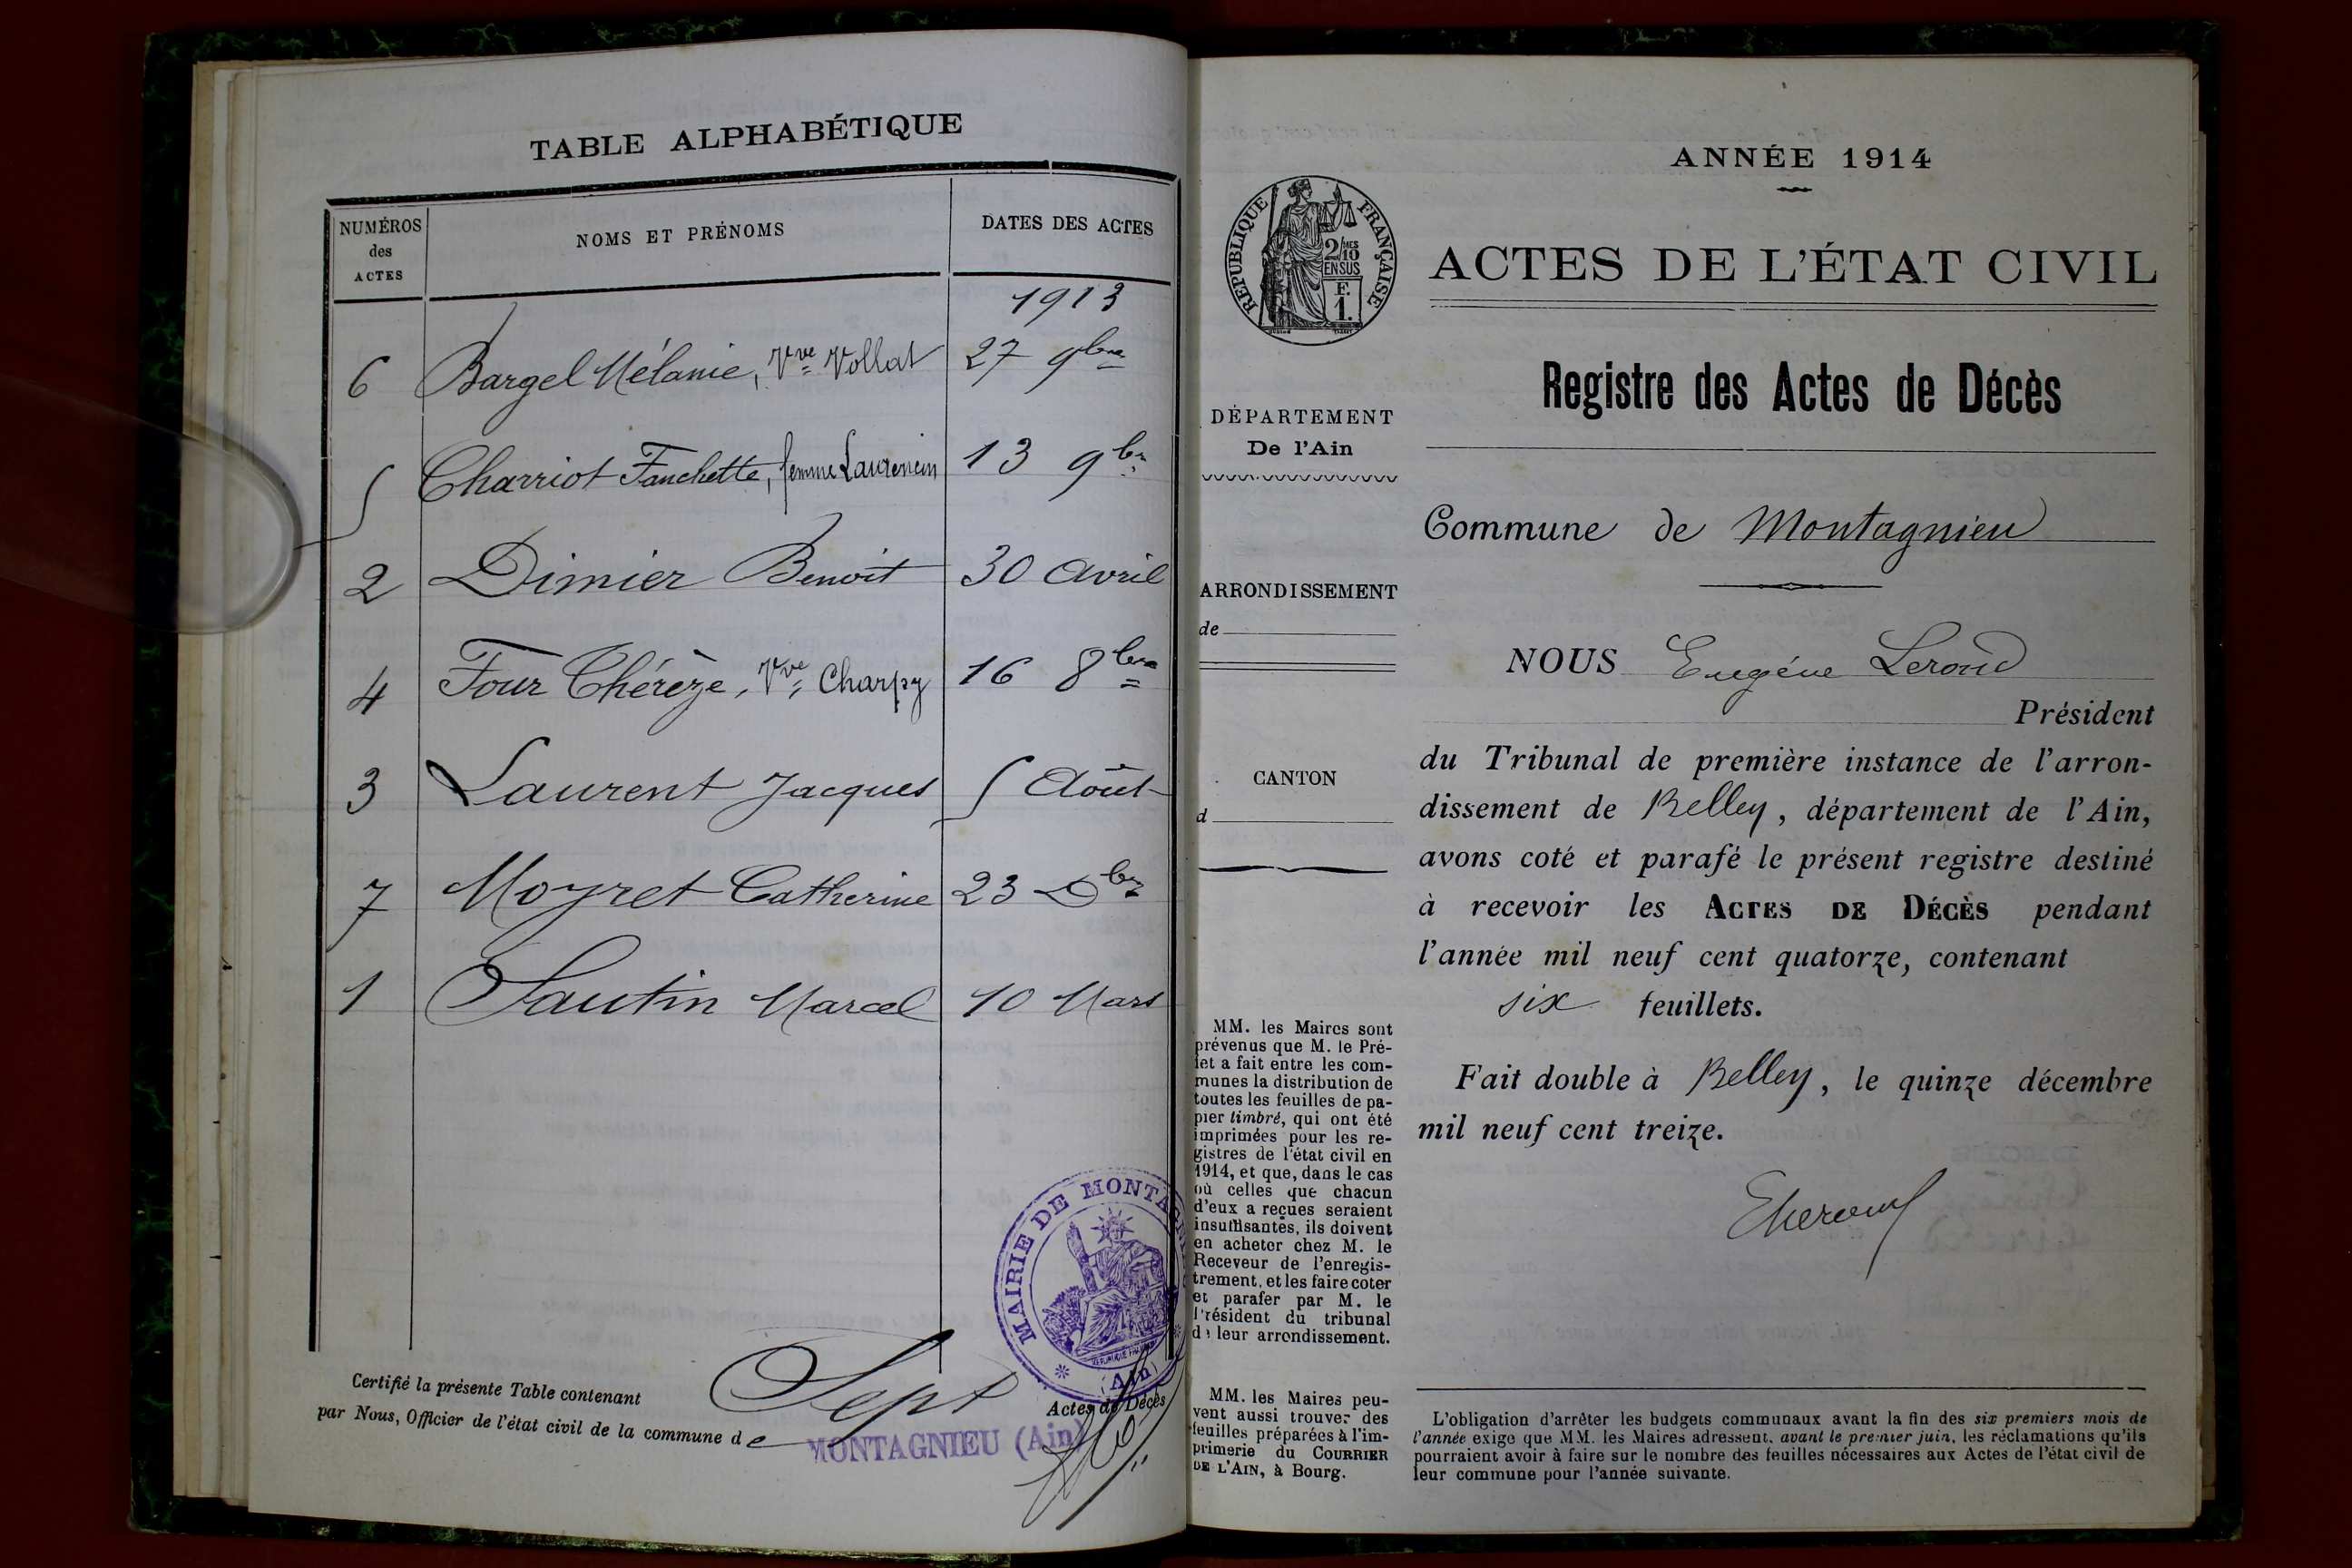 TABLE ALPHABÉTIQUE
NUMÉROS des ACTES
NOMS ET PRÉNOMS
DATES DES ACTES
1913
6 Bargel Mélanie, Vve Vollat 27 9bre
5 Charriot Fanchette, femme Laurencin 13 9bre
2 Dimier Benoit 30 Avril
4 Four Thérèze, Vve Charpy 16 8bre
3 Laurent Jacques 5 Août
7 Moyret Catherine 23 Dbre
1 Sautin Marcel 10 Mars
MAIRIE DE MONTAGNIEU
(Ain)
Certifié la présente Table contenant Sept Actes de Décès
par Nous, Officier de l'état civil de la commune de MONTAGNIEU (Ain)
RÉPUBLIQUE FRANÇAISE
2/10MES
EN SUS
F.
1.
DÉPARTEMENT
De l'Ain
ARRONDISSEMENT
de
CANTON
d
MM. les Maires sont
prévenus que M. le Pré-
fet a fait entre les com-
munes la distribution de
toutes les feuilles de pa-
pier timbré, qui ont été
imprimées pour les re-
gistres de l'état civil en
1914, et que, dans le cas
où celles que chacun
d'eux a reçues seraient
insuffisantes, ils doivent
en acheter chez M. le
Receveur de l'enregis-
trement, et les faire coter
et parafer par M. le
Président du tribunal
de leur arrondissement.
MM. les Maires peu-
vent aussi trouver des
feuilles préparées à l'im-
primerie du COURRIER
DE L'AIN, à Bourg.
ANNÉE 1914
ACTES DE L'ÉTAT CIVIL
Registre des Actes de Décès
Commune de Montagnieu
NOUS Eugéne Leroud
Président
du Tribunal de première instance de l'arron-
dissement de Belley, département de l'Ain,
avons coté et parafé le présent registre destiné
à recevoir les ACTES DE DÉCÈS pendant
l'année mil neuf cent quatorze, contenant
six feuillets.
Fait double à Belley, le quinze décembre
mil neuf cent treize.
L'obligation d'arrêter les budgets communaux avant la fin des six premiers mois de
l'année exige que MM. les Maires adressent, avant le premier juin, les réclamations qu'ils
pourraient avoir à faire sur le nombre des feuilles nécessaires aux Actes de l'état civil de
leur commune pour l'année suivante.